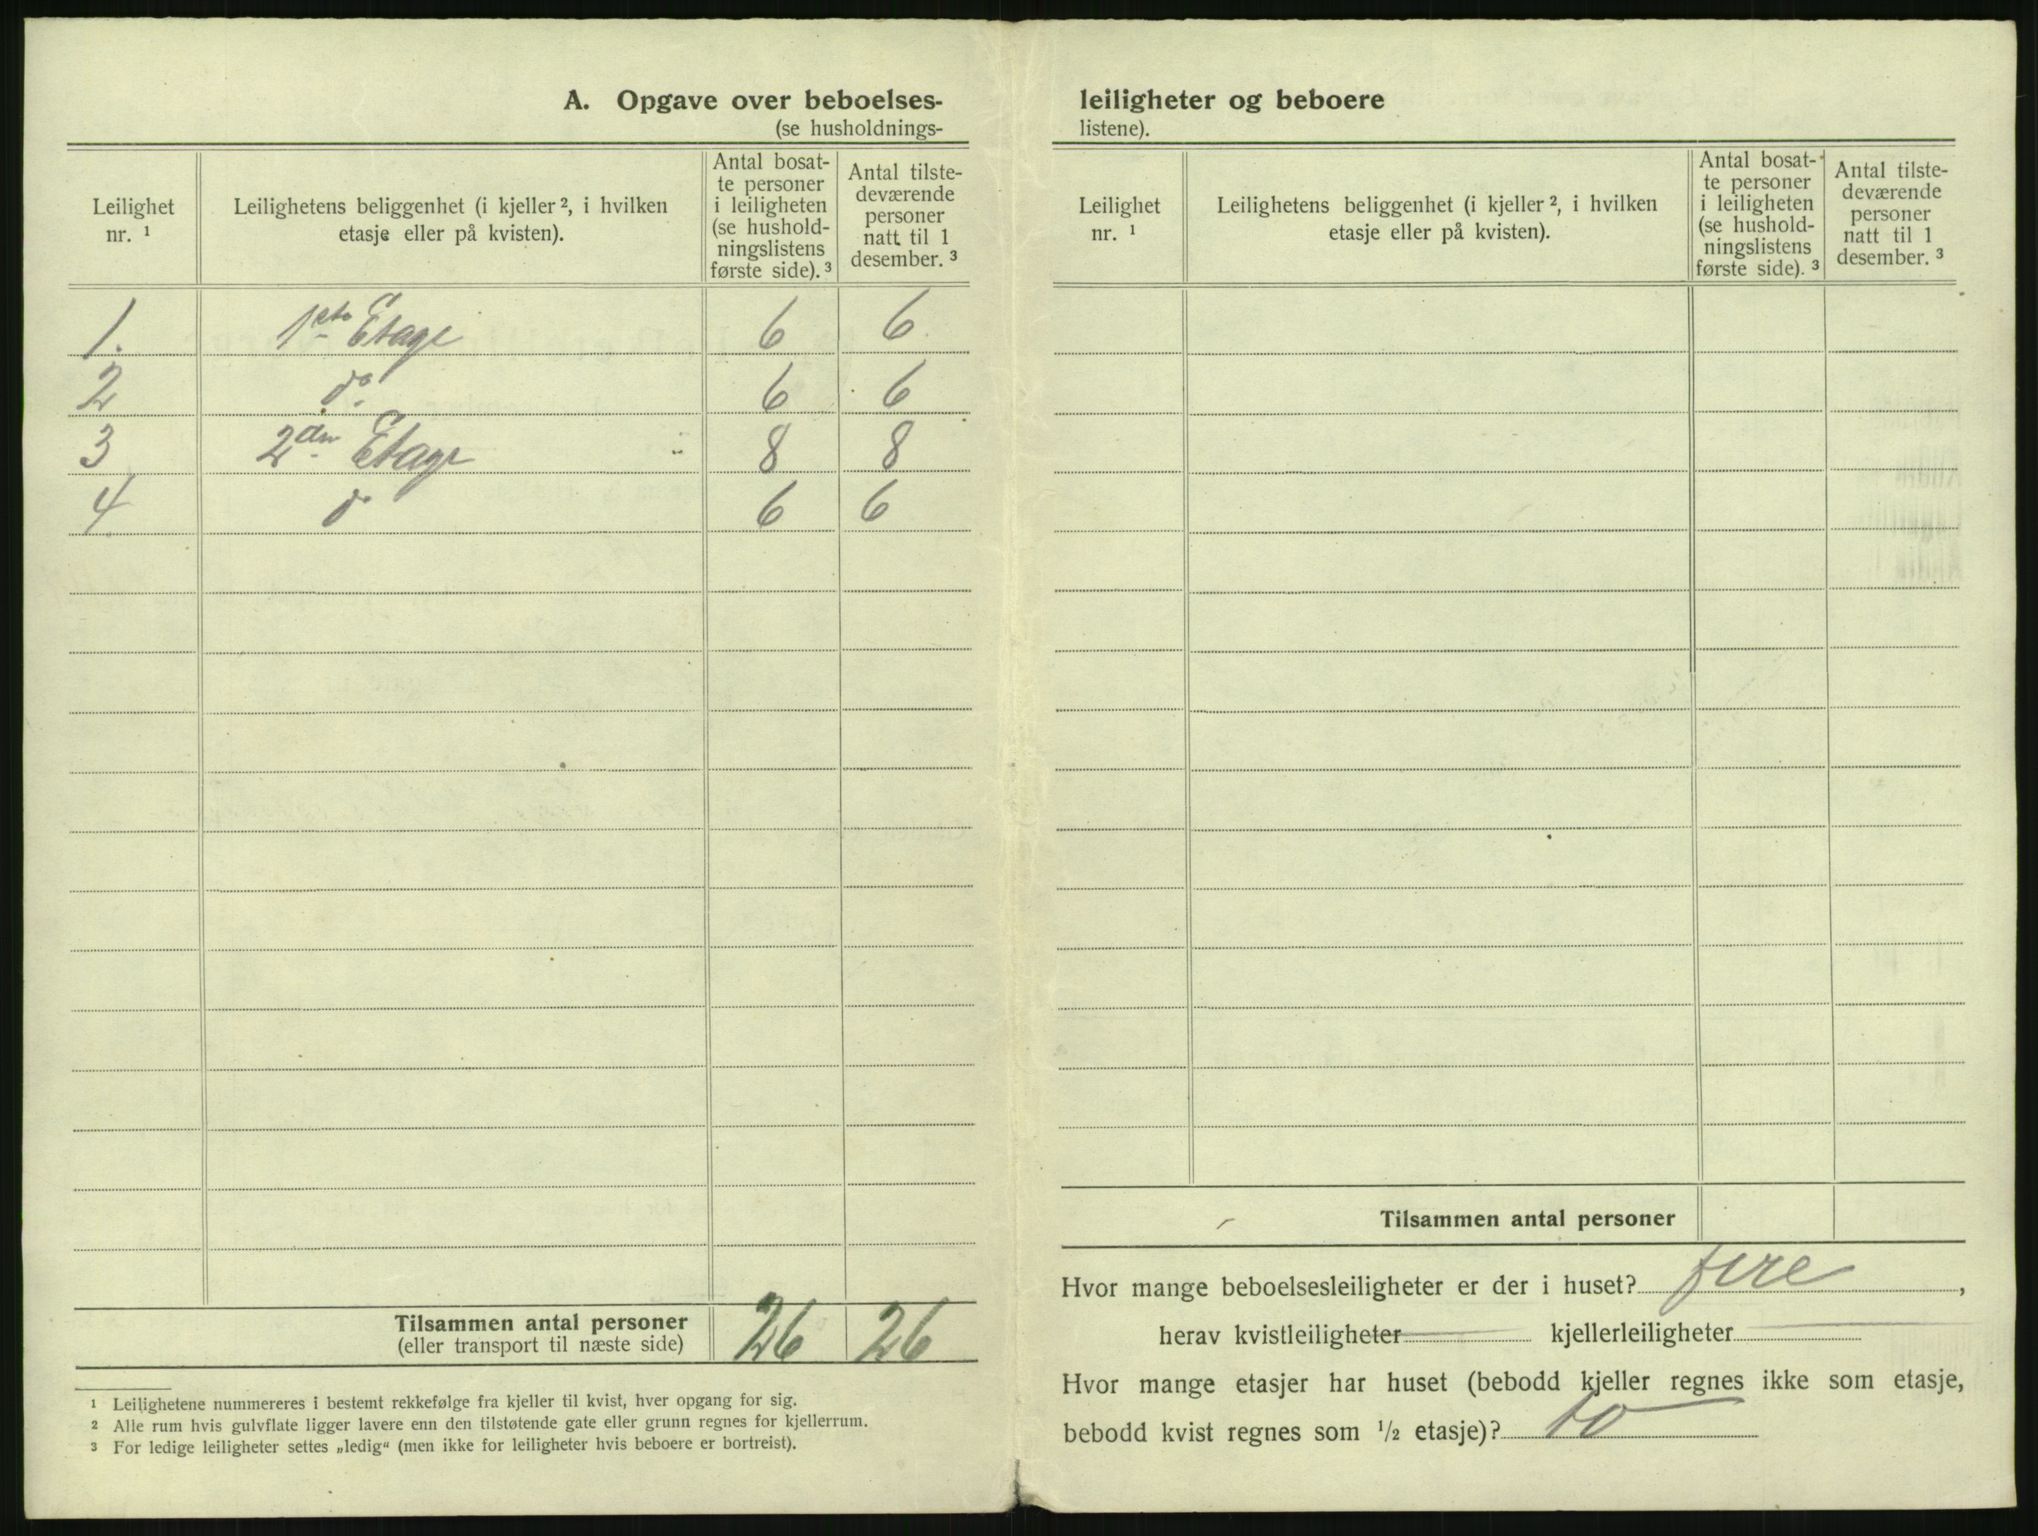 A. Opgave over beboelses-
(se husholdnings-
Leilighet nr. ¹
Leilighetens beliggenhet (i kjeller ², i hvilken
etasje eller på kvisten).
Antal bosat-
te personer
i leiligheten
(se hushold-
ningslistens
første side). ³
Antal tilste-
deværende
personer
natt til 1
desember. ³
1. 1ste Etage 6 6
2 do. 6 6
3 2den Etage 8 8
4. do 6 6
Tilsammen antal personer 26 26
(eller transport til næste side)
¹ Leilighetene nummereres i bestemt rekkefølge fra kjeller til kvist, hver opgang for sig.
² Alle rum hvis gulvflate ligger lavere enn den tilstøtende gate eller grunn regnes for kjellerrum.
³ For ledige leiligheter settes „ledig“ (men ikke for leiligheter hvis beboere er bortreist).
leiligheter og beboere
listene).
Leilighet
nr. ¹
Leilighetens beliggenhet (i kjeller ², i hvilken
etasje eller på kvisten).
Antal bosat-
te personer
i leiligheten
(se hushold-
ningslistens
første side). ³
Antal tilste-
deværende
personer
natt til 1
desember. ³
Tilsammen antal personer
Hvor mange beboelsesleiligheter er der i huset? fire,
herav kvistleiligheter — kjellerleiligheter —
Hvor mange etasjer har huset (bebodd kjeller regnes ikke som etasje,
bebodd kvist regnes som ½ etasje)? to